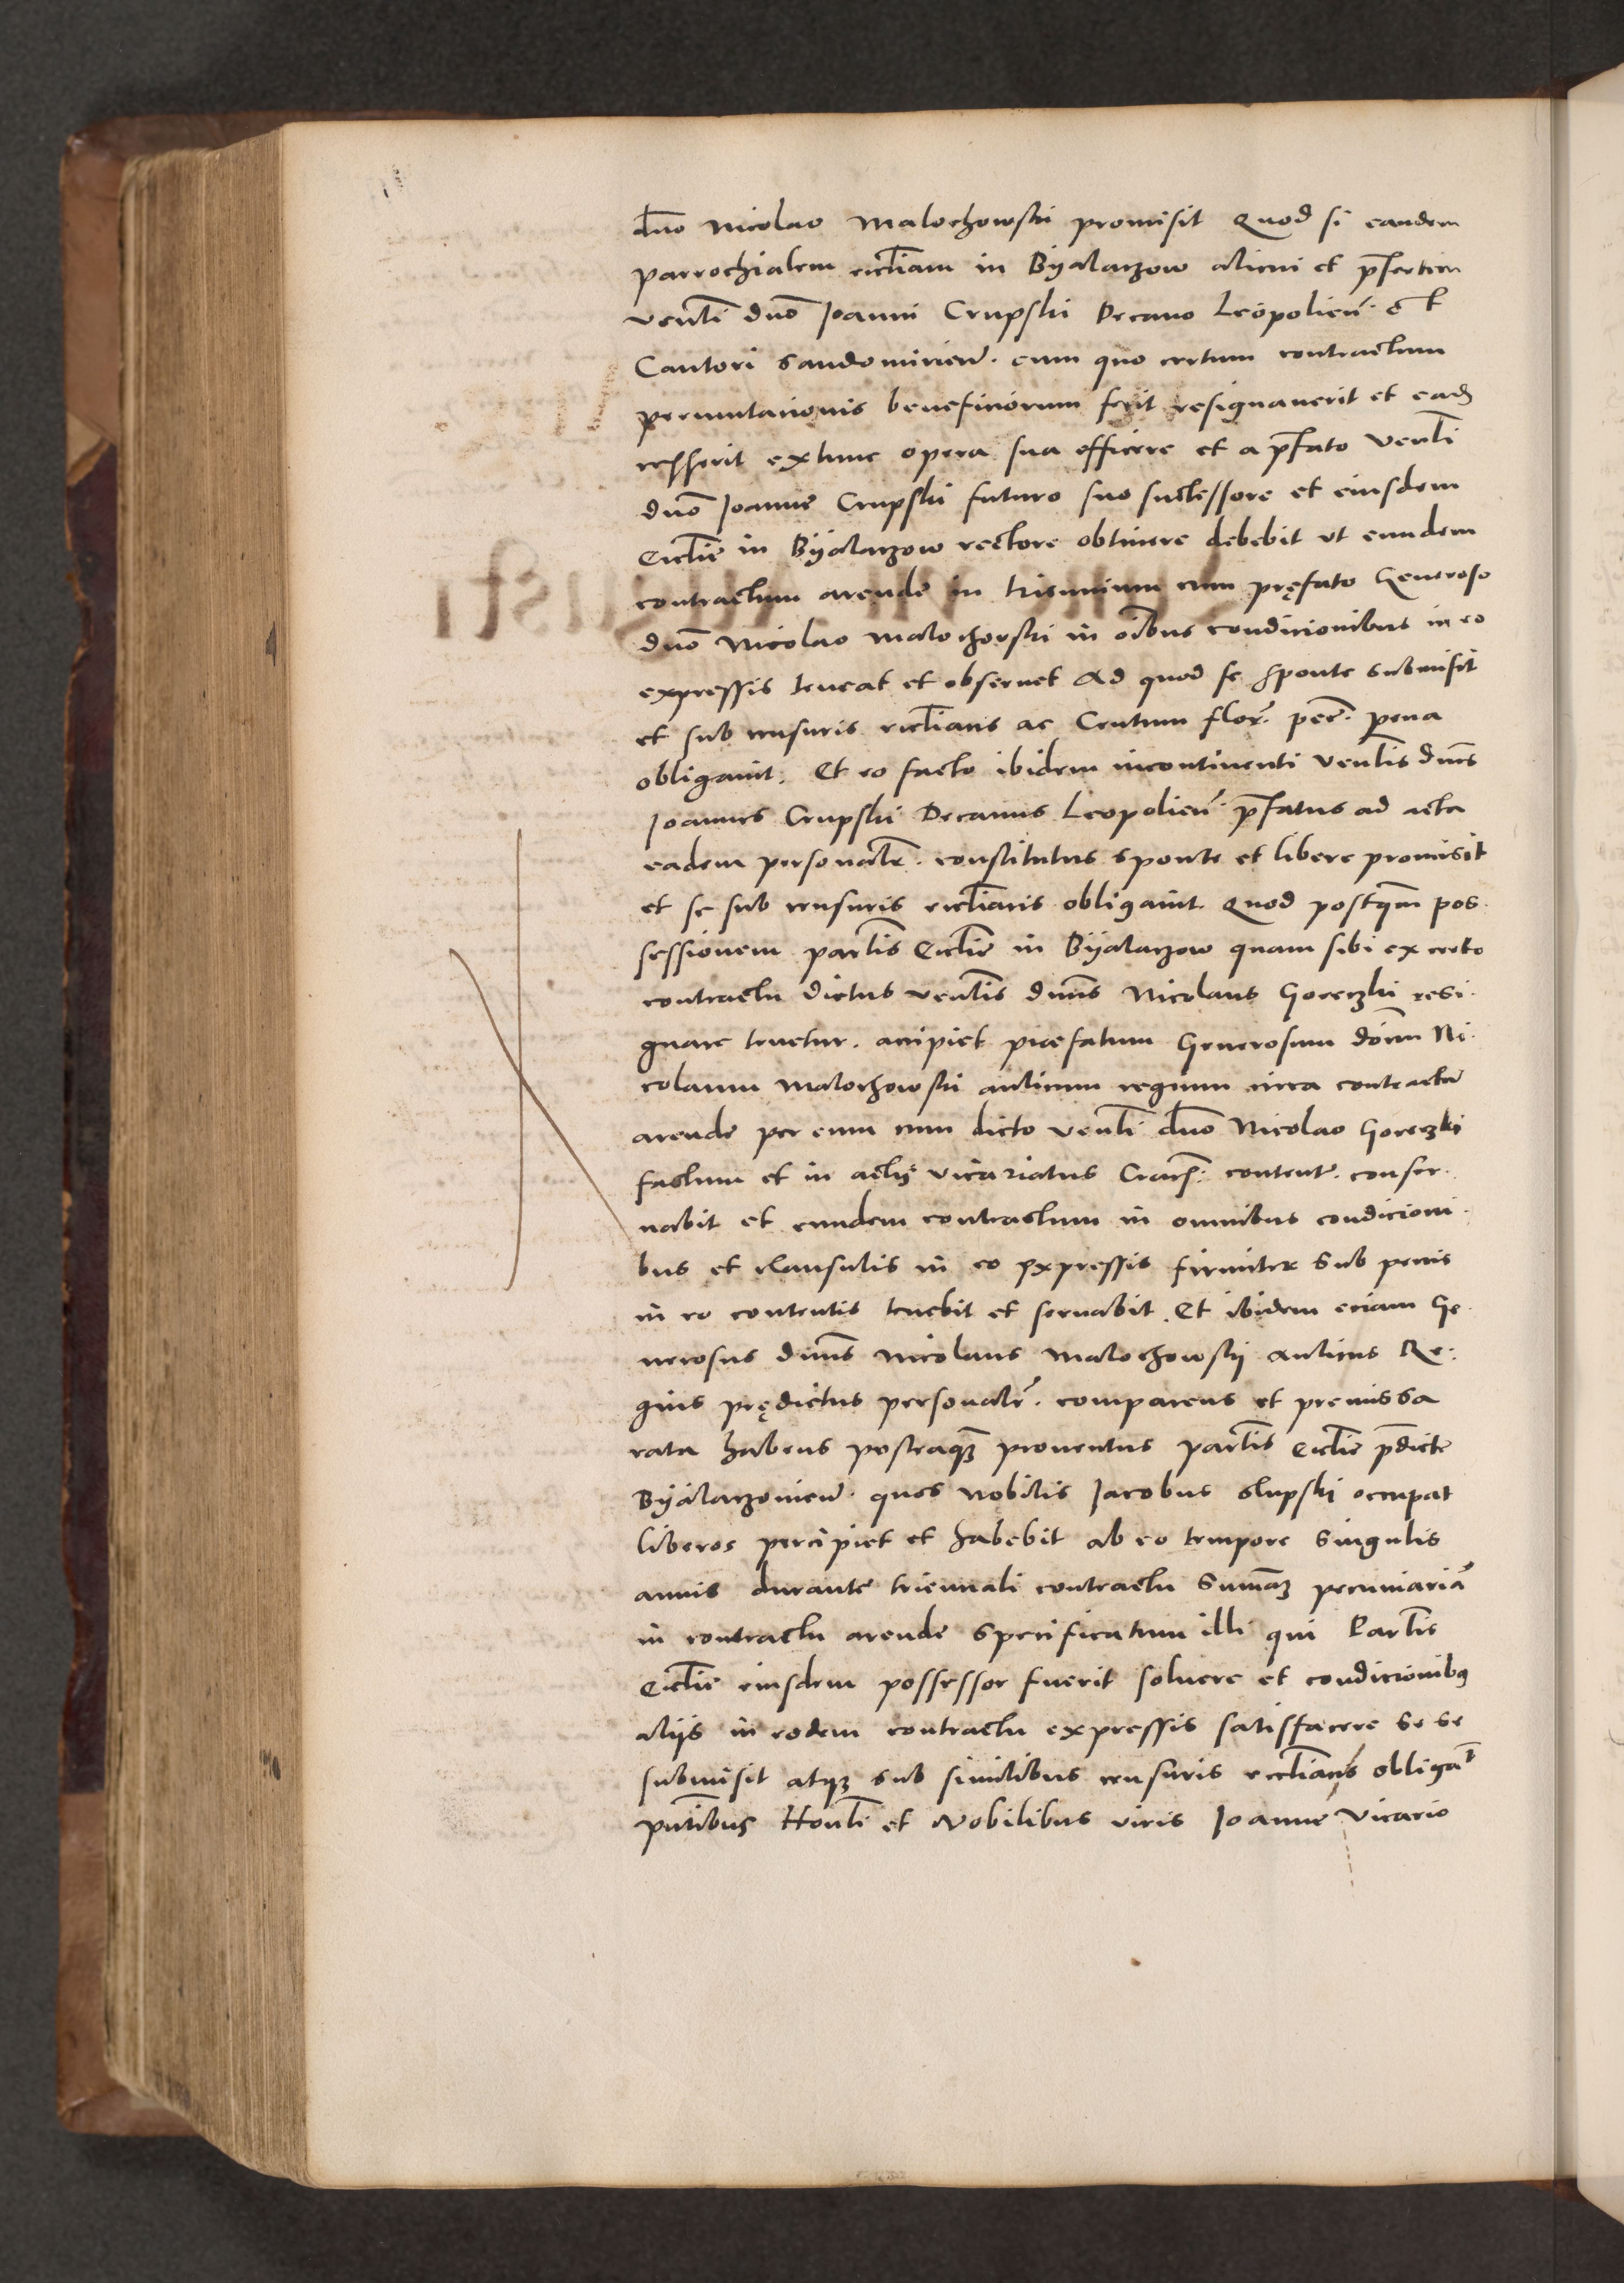 dno Nicolao Malochowski promisit Quod si eandem
parrochialem eccliam in Byalaczow alicui et prsertim
venli dno Ioanni Crupski Decano Leopolien. et
Cantori Sandomirien. cum quo certum contractum
permutationis beneficiorum fecit resignaverit et ead
cesserit extunc opera sua efficere et a prfato Venli
dno Ioanne Crupski futuro suo successore et eiusdem
Ecclie in Byalaczow rectore obtinere debebit ut eundem
contractum arende in triennium cum pręfato Generoso
dno Nicolao Malochowski in oibus condicionibus in eo
expressis teneat et observet Ad quod se sponte submisit
et sub censuris ecclicis ac Centum flor. pec. pena
obligavit. Et eo facto ibidem incontinenti Venlis dnus
Ioannes Crupski Decanus Leopolien. prfatus ad acta
eadem personalr. constitutus sponte et libere promisit
et se sub censuris ecclicis obligavit. Quod postqm pos.
sessionem parlis Ecclie in Byalaczow quam sibi ex certo
contractu dictus venlis dnus Nicolaus Goreczki resi.
gnare tenetur. accipiet praefatum Generosum doim Ni.
colaum Malochowski aulicum regium circa contractu
arende per eum cum dicto Venli dno Nicolao Goreczki
factum et in actis vicariatus Crac. content. conser.
vabit et eundem contractum in omnibus condicioni.
bus et clausulis in eo expressis firmiter sub penis
in eo contentis tenebit et servabit. Et ibidem eciam Ge.
nerosus dnus Nicolaus Malochowsky aulicus Re.
gius prędictus personalr. comparens et premissa
rata habens posteaqz proventus parlis Ecclie prdicte
Byalaczovien. quos Nobilis Iacobus Slupski occupat
liberos percipiet et habebit ab eo tempore singulis
annis durante triennali contractu summaz pecuniariã
in contractu arende specificatum illi qui Parlis
Ecclie eiusdem possessor fuerit solvere et condicionibus
aliis in eodem contractu expressis satisfacere se se
submisit atqz sub similibus censuris ecclicis obligat
pntibus Honli et Nobilibus viris Ioanne Vicario